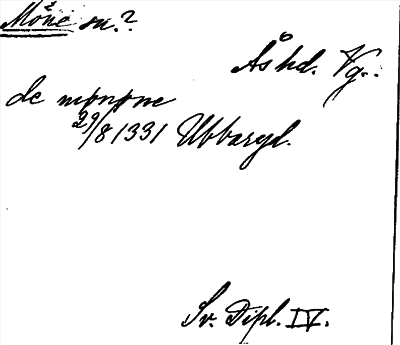 Mone su.?
Åshd. Vg.:
de monone
29/8 1331 Ubbaryd.
Sv. Dipl. IV.